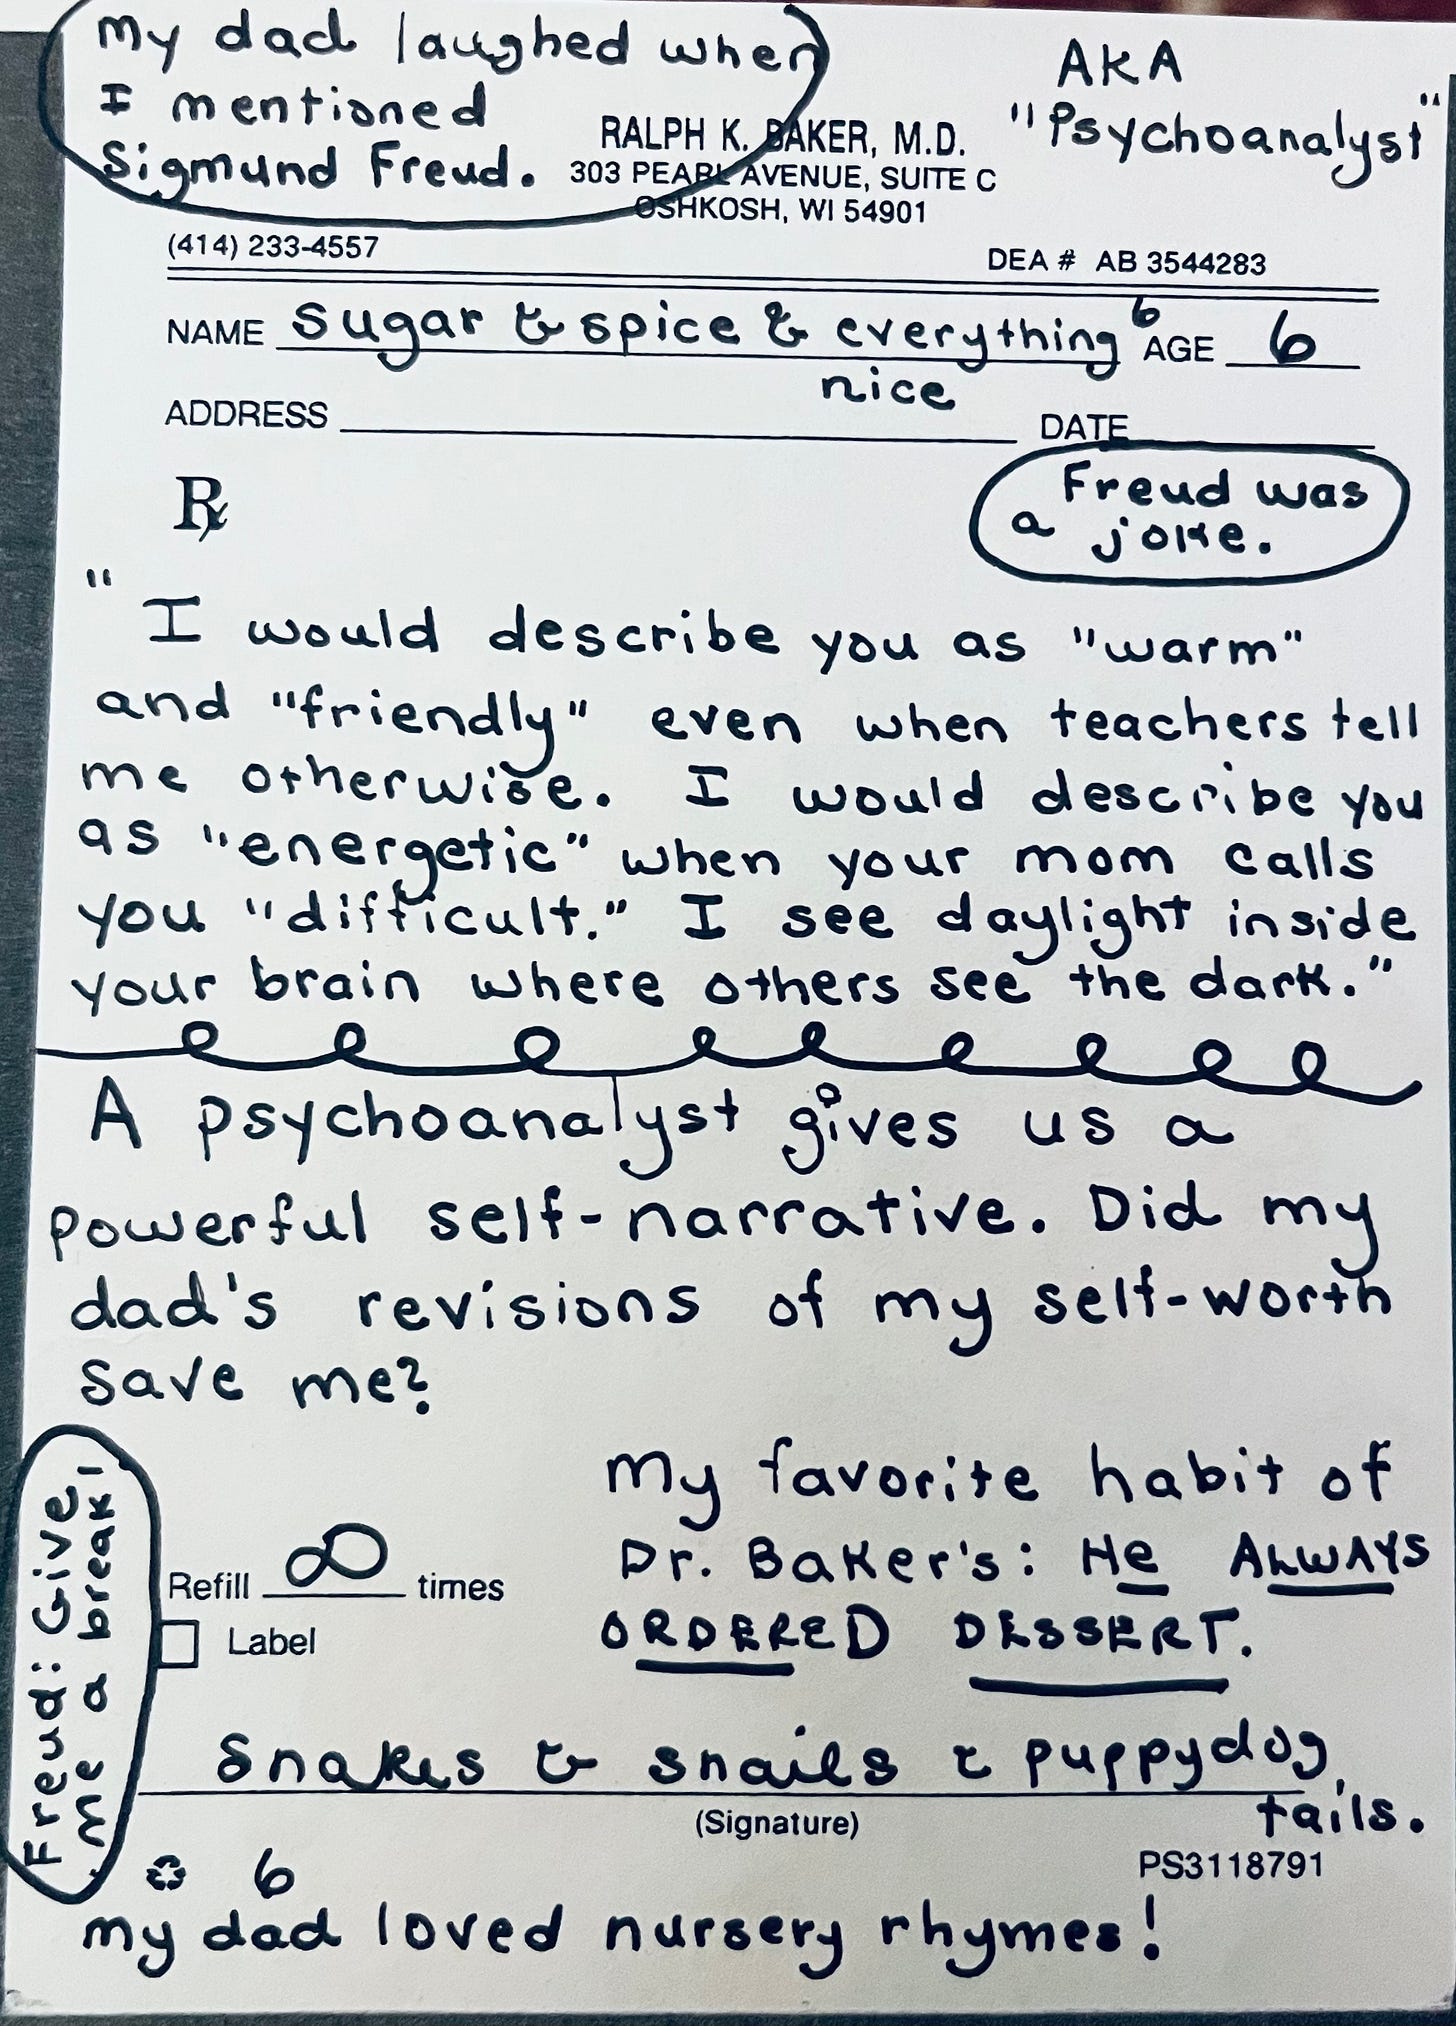 My dad laughed when
I mentioned
Sigmund Freud.
AKA
"Psychoanalyst"
RALPH K. BAKER, M.D.
303 PEARL AVENUE, SUITE C
OSHKOSH, WI 54901
(414) 233-4557
DEA # AB 3544283
NAME Sugar & spice & everything 6 AGE 6
nice
ADDRESS
DATE
Rx
Freud was
a joke.
"I would describe you as "warm"
and "friendly" even when teachers tell
me otherwise. I would describe you
as "energetic" when your mom calls
you "difficult." I see daylight inside
your brain where others see the dark."
A psychoanalyst gives us a
powerful self-narrative. Did my
dad's revisions of my self-worth
save me?
Freud: Give
me a break!
My favorite habit of
Dr. Baker's: He ALWAYS
ORDERED DESSERT.
Refill ∞ times
Label
Snakes & snails & puppydog
tails.
(Signature)
PS3118791
6
My dad loved nursery rhymes!